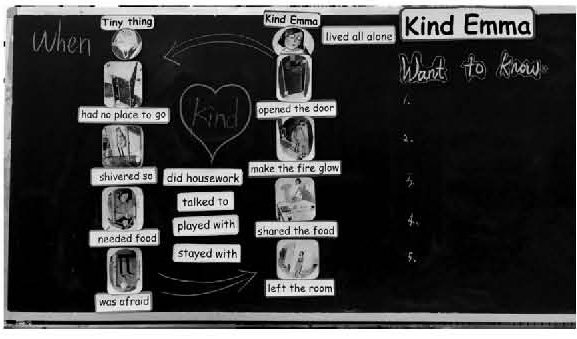 When
Tiny thing
had no place to go
shivered so
needed food
was afraid
Kind
did housework
talked to
played with
stayed with
Kind Emma
lived all alone
opened the door
make the fire glow
shared the food
left the room
Kind Emma
Want to Know
1.
2.
3.
4.
5.